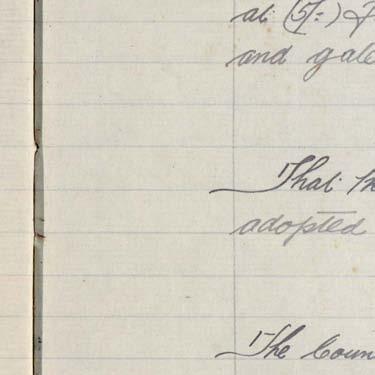 at (5/=)
and gate
That th
adopted
The Coun